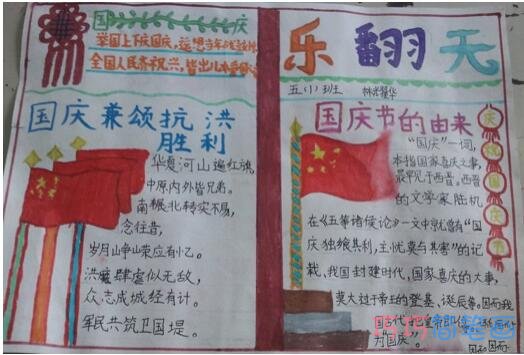 国庆
举国上下庆国庆,
全国人民齐祝兴,皆出儿
国庆兼颂抗洪
胜利
华夏河山遍红旗,
中原内外皆兄弟。
南辕北转实不易,
念往昔,
岁月山争荣应有小乙。
洪魔肆虐似无敌,
众志成城经有计。
军民共筑卫国堤。
乐翻天
五(1)班
国庆节的由来
庆祝国庆节
"国庆"一词,
本指国家喜庆之事,
最早见于西晋。西晋
的文学家陆机
在《五等诸侯论》一文中就曾有"国
庆独飨其利,主忧莫与其害"的记
载,我国封建时代,国家喜庆的大事,
莫大过于帝王的登基、诞辰等。因而我
国古代把皇帝即位、
为"国庆"。